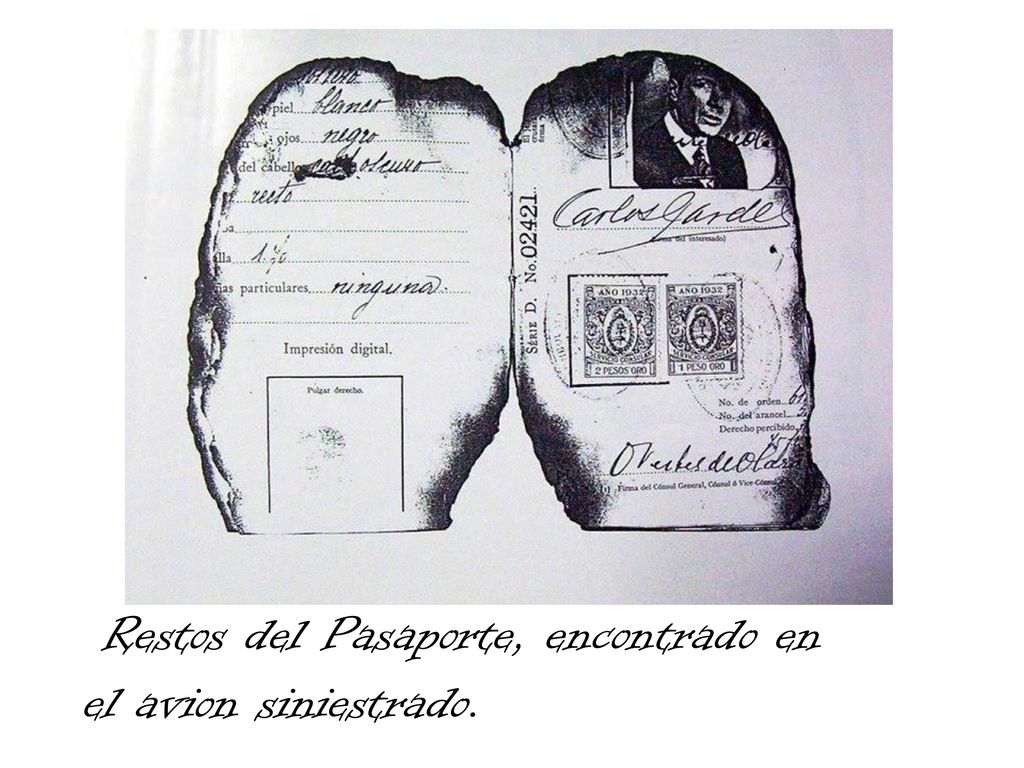 piel blanco
ojos negro
del cabello oscuro
recto
alla 1.70
ñas particulares ninguna
Impresión digital.
Pulgar derecho.
SÉRIE D. No. 02421
Carlos Gardel
del interesado)
AÑO 1932
SERVICIO CONSULAR
2 PESOS ORO
AÑO 1932
SERVICIO CONSULAR
1 PESO ORO
No. de orden
No. del arancel
Derecho percibido
Firma del Cónsul General, Cónsul ó Vice-Cónsul
Restos del Pasaporte, encontrado en
el avion siniestrado.